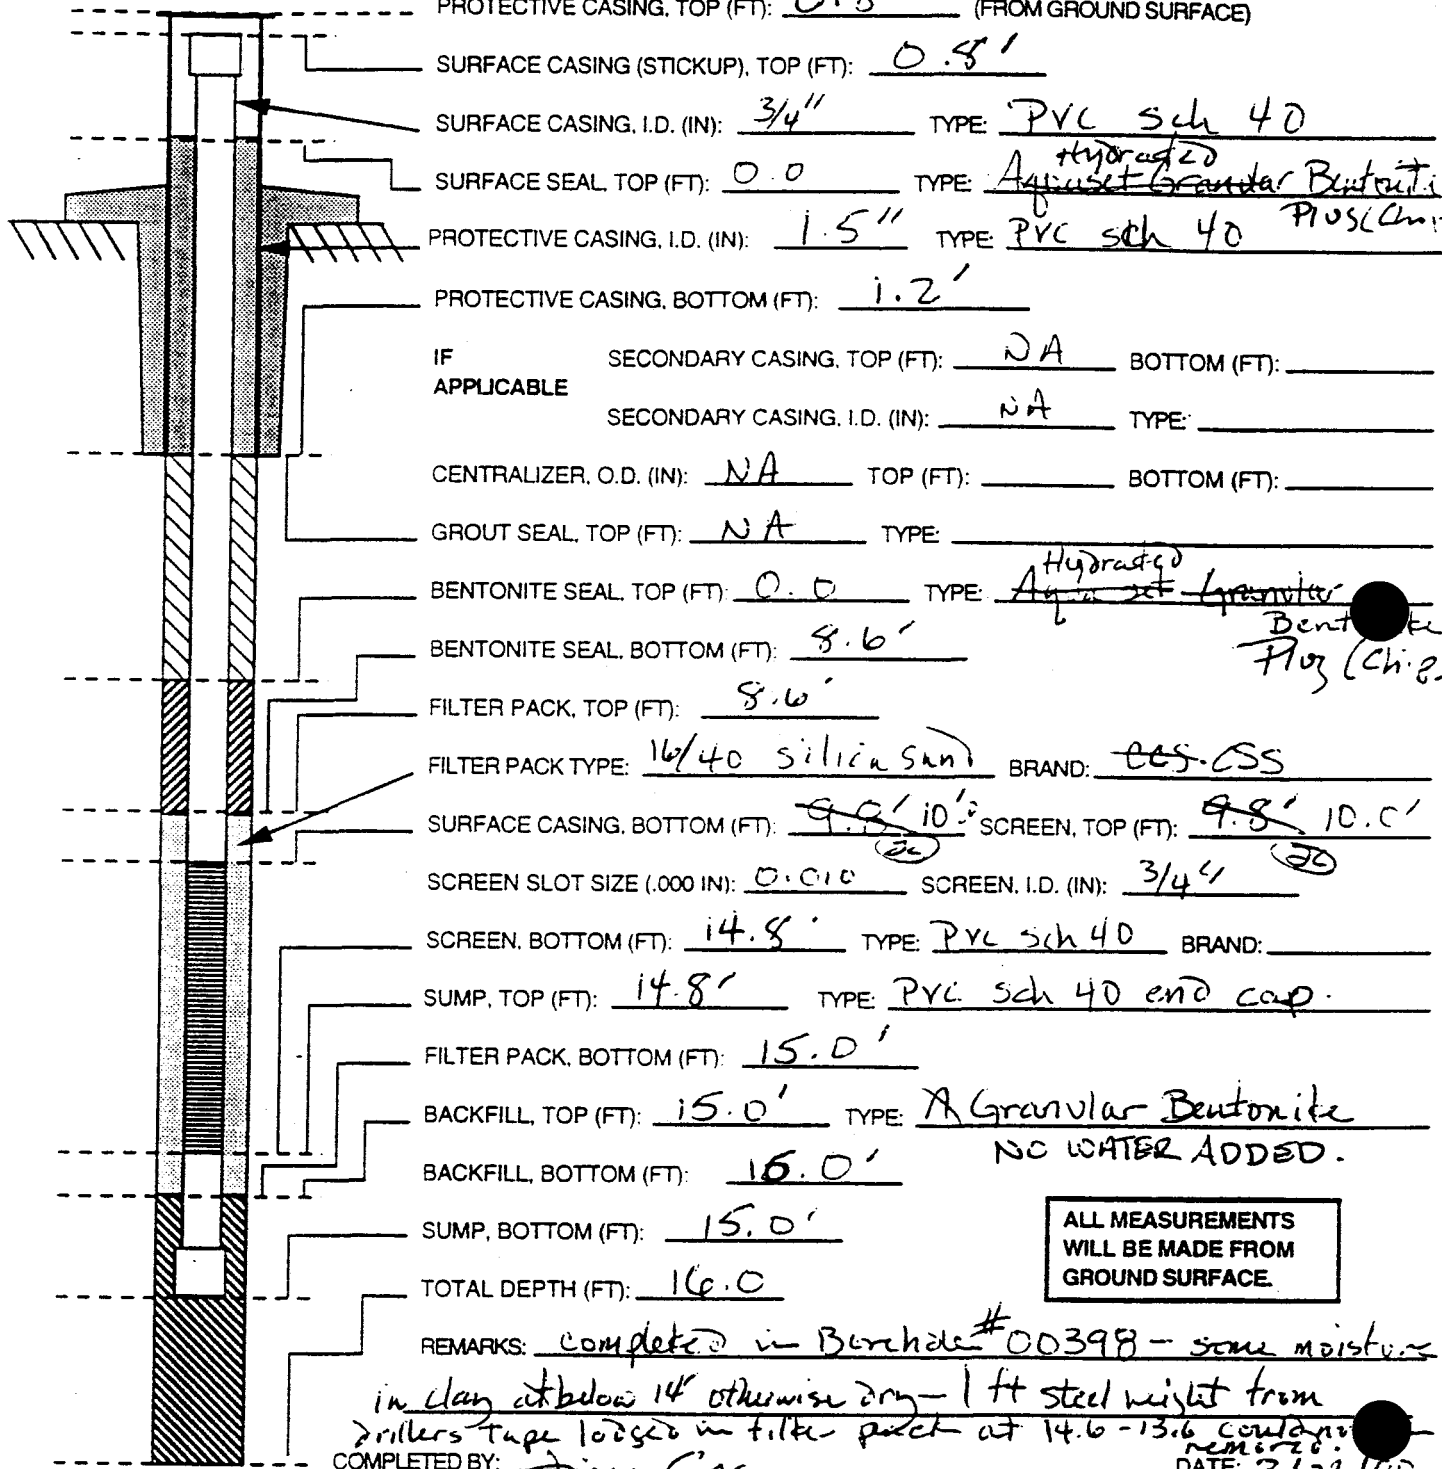 PROTECTIVE CASING, TOP (FT): 0.8 (FROM GROUND SURFACE)
SURFACE CASING (STICKUP), TOP (FT): 0.8'
SURFACE CASING, I.D. (IN): 3/4" TYPE: PVC sch 40
Hydrated
SURFACE SEAL, TOP (FT): 0.0 TYPE: Aquaset Granular Bentonit
Plug (Chi
PROTECTIVE CASING, I.D. (IN): 1.5" TYPE: PVC sch 40
PROTECTIVE CASING, BOTTOM (FT): 1.2'
IF APPLICABLE
SECONDARY CASING, TOP (FT): NA BOTTOM (FT):
SECONDARY CASING, I.D. (IN): NA TYPE:
CENTRALIZER, O.D. (IN): NA TOP (FT): BOTTOM (FT):
GROUT SEAL, TOP (FT): NA TYPE:
Hydrated
BENTONITE SEAL, TOP (FT): 0.0 TYPE: Aquaset Granular
Bent ke
Plug (Chi
BENTONITE SEAL, BOTTOM (FT): 8.6'
FILTER PACK, TOP (FT): 8.6'
FILTER PACK TYPE: 16/40 silica sand BRAND: CSS
SURFACE CASING, BOTTOM (FT): 9.8' 10' SCREEN, TOP (FT): 9.8' 10.0'
SCREEN SLOT SIZE (.000 IN): 0.010 SCREEN, I.D. (IN): 3/4"
SCREEN, BOTTOM (FT): 14.8' TYPE: PVC sch 40 BRAND:
SUMP, TOP (FT): 14.8' TYPE: PVC sch 40 end cap.
FILTER PACK, BOTTOM (FT): 15.0'
BACKFILL, TOP (FT): 15.0' TYPE: Granular Bentonite
NO WATER ADDED.
BACKFILL, BOTTOM (FT): 16.0'
SUMP, BOTTOM (FT): 15.0'
ALL MEASUREMENTS
WILL BE MADE FROM
GROUND SURFACE.
TOTAL DEPTH (FT): 16.0
REMARKS: completed in Borehole #00398 - some moisture
in clay at below 14' otherwise dry - 1 ft steel weight from
drillers tape lodged in filter pack at 14.6 - 13.6 could no
COMPLETED BY: DATE: